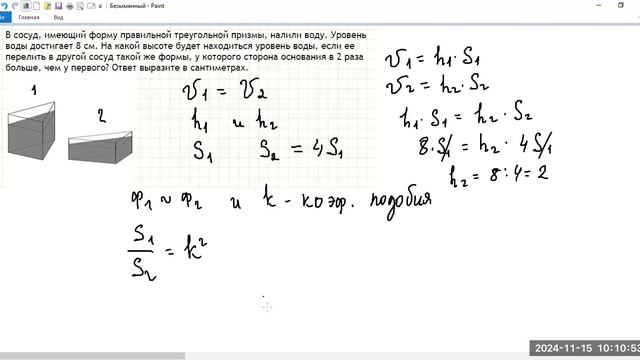 Безымянный - Paint
Главная Вид
В сосуд, имеющий форму правильной треугольной призмы, налили воду. Уровень
воды достигает 8 см. На какой высоте будет находиться уровень воды, если ее
перелить в другой сосуд такой же формы, у которого сторона основания в 2 раза
больше, чем у первого? Ответ выразите в сантиметрах.
1
2
V₁ = V₂
h₁ и h₂
S₁ S₂ = 4S₁
V₁ = h₁ · S₁
V₂ = h₂ · S₂
h₁ · S₁ = h₂ · S₂
8 · S₁ = h₂ · 4S₁
h₂ = 8 : 4 = 2
Ф₁ ~ Ф₂ и k - коэф. подобия
S₁/S₂ = k²
2024-11-15 10:10:53